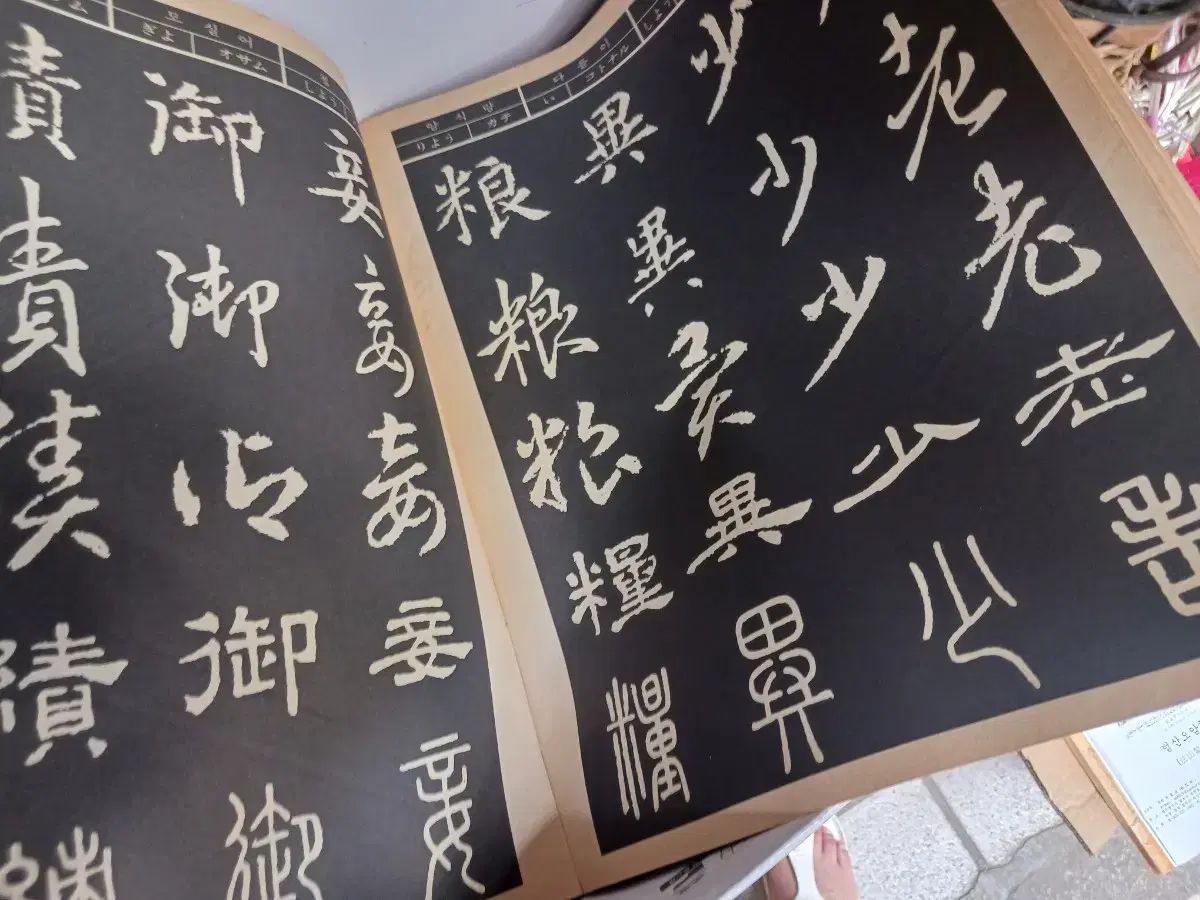 老
老
老
老
少
少
少
少
少
다를이
い コトナル
異
異
異
異
異
양식량
りよう カテ
粮
粮
粮
糧
糧
しよう
妾
妾
妾
妾
妾
모실어
ぎよ オサム
御
御
御
御
御
績